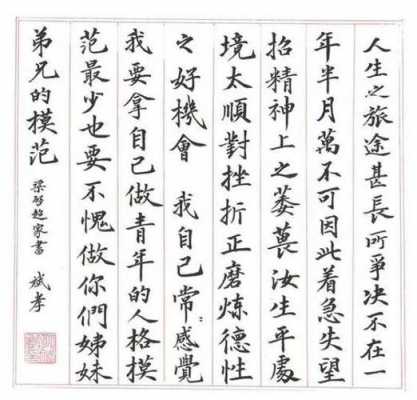 人生之旅途甚長所爭决不在一
年半月萬不可因此着急失望
招精神上之萎葨汝生平處
境太順對挫折正磨煉德性
之好機會 我自己常〻感覺
我要拿自己做青年的人格模
范最少也要不愧做你們姊妹
弟兄的模范
梁啓超家書 斌孝